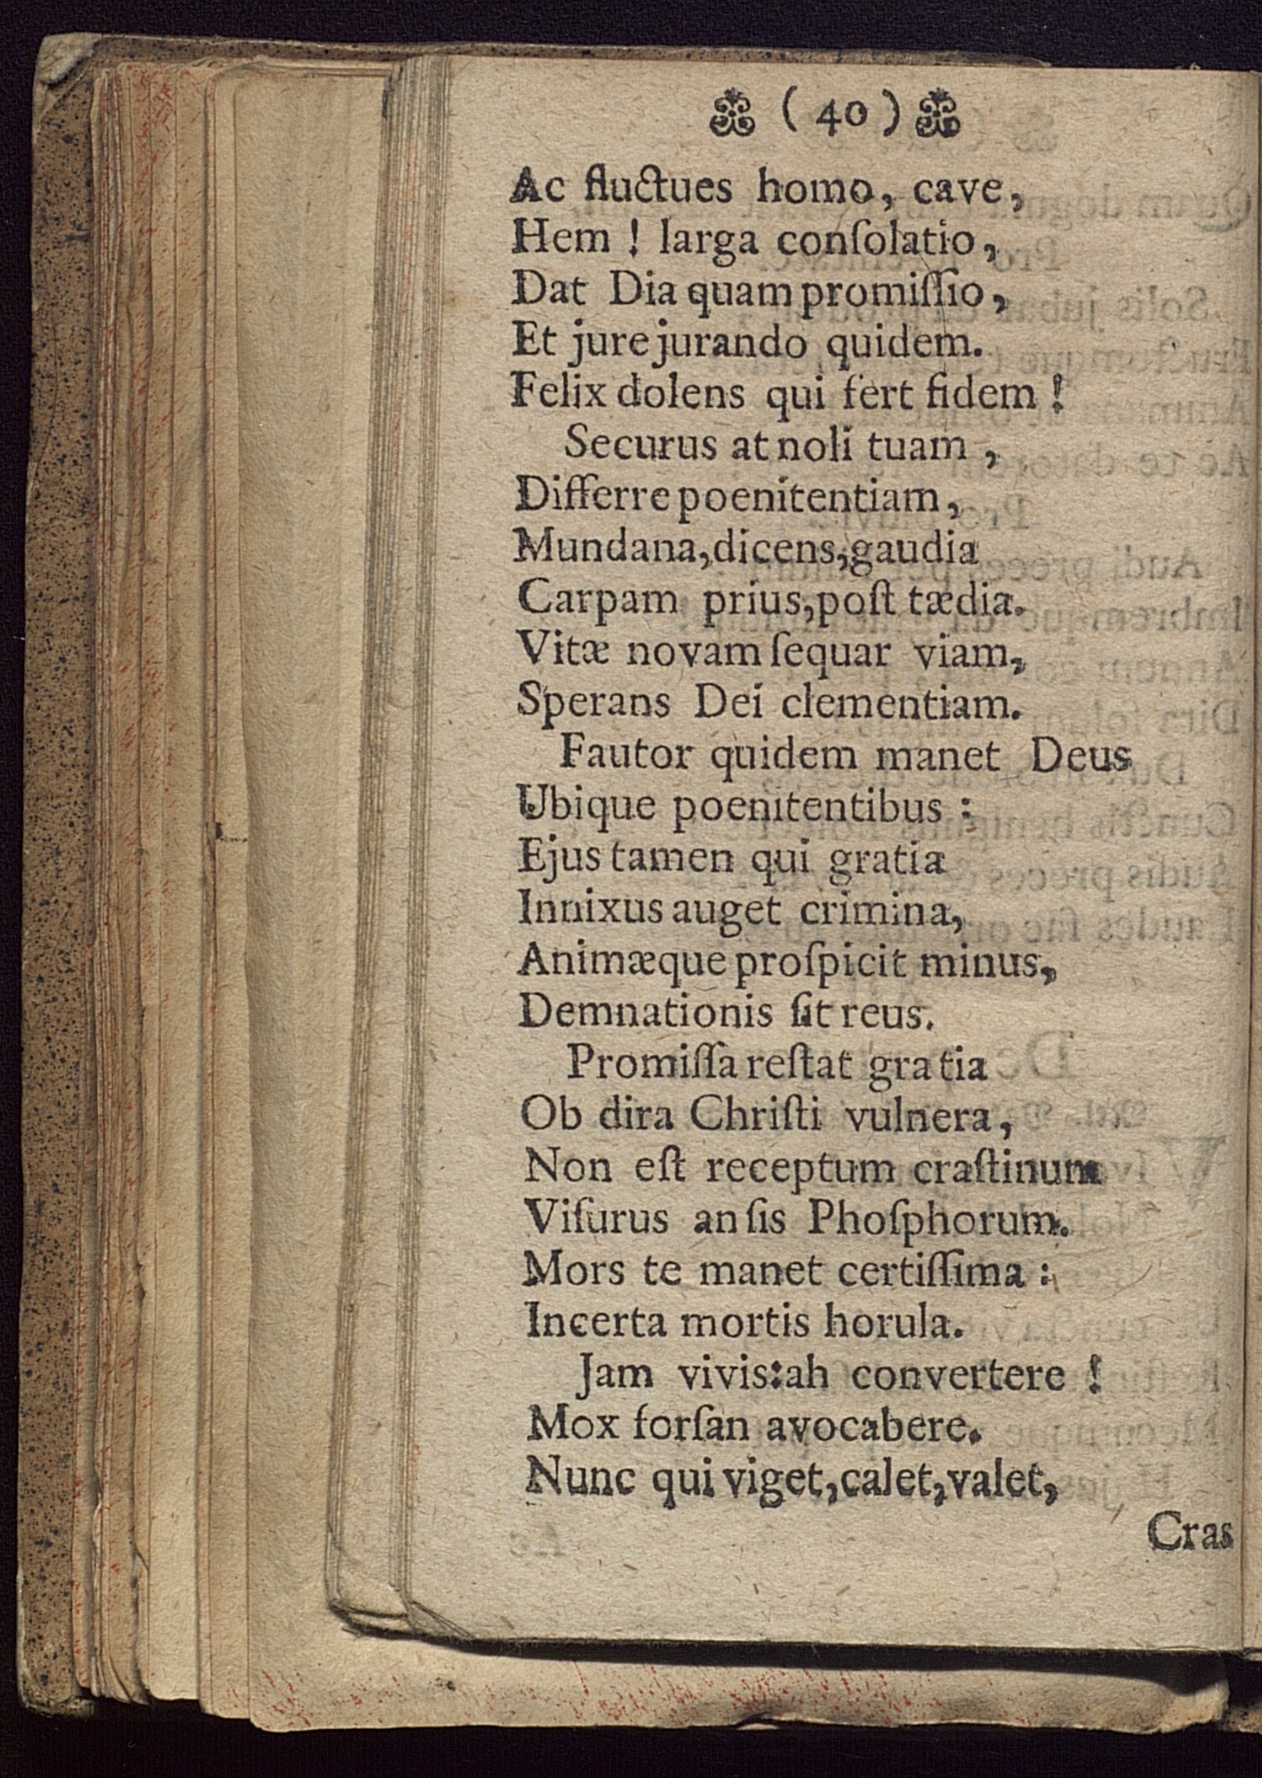 ( 40 )
Ac fluctues homo, cave,
Hem ! larga conſolatio,
Dat Dia quam promiſſio,
Et jure jurando quidem.
Felix dolens qui fert fidem !
Securus at noli tuam ,
Differre poenitentiam,
Mundana, dicens, gaudia
Carpam prius, poſt tædia.
Vitæ novam ſequar viam,
Sperans Dei clementiam.
Fautor quidem manet Deus
Ubique poenitentibus :
Ejus tamen qui gratia
Innixus auget crimina,
Animæque proſpicit minus,
Demnationis ſit reus.
Promiſſa reſtat gratia
Ob dira Chriſti vulnera,
Non eſt receptum craſtinum
Viſurus an ſis Phoſphorum.
Mors te manet certiſſima :
Incerta mortis horula.
Jam vivis: ah convertere !
Mox forſan avocabere.
Nunc qui viget, calet, valet,
Cras